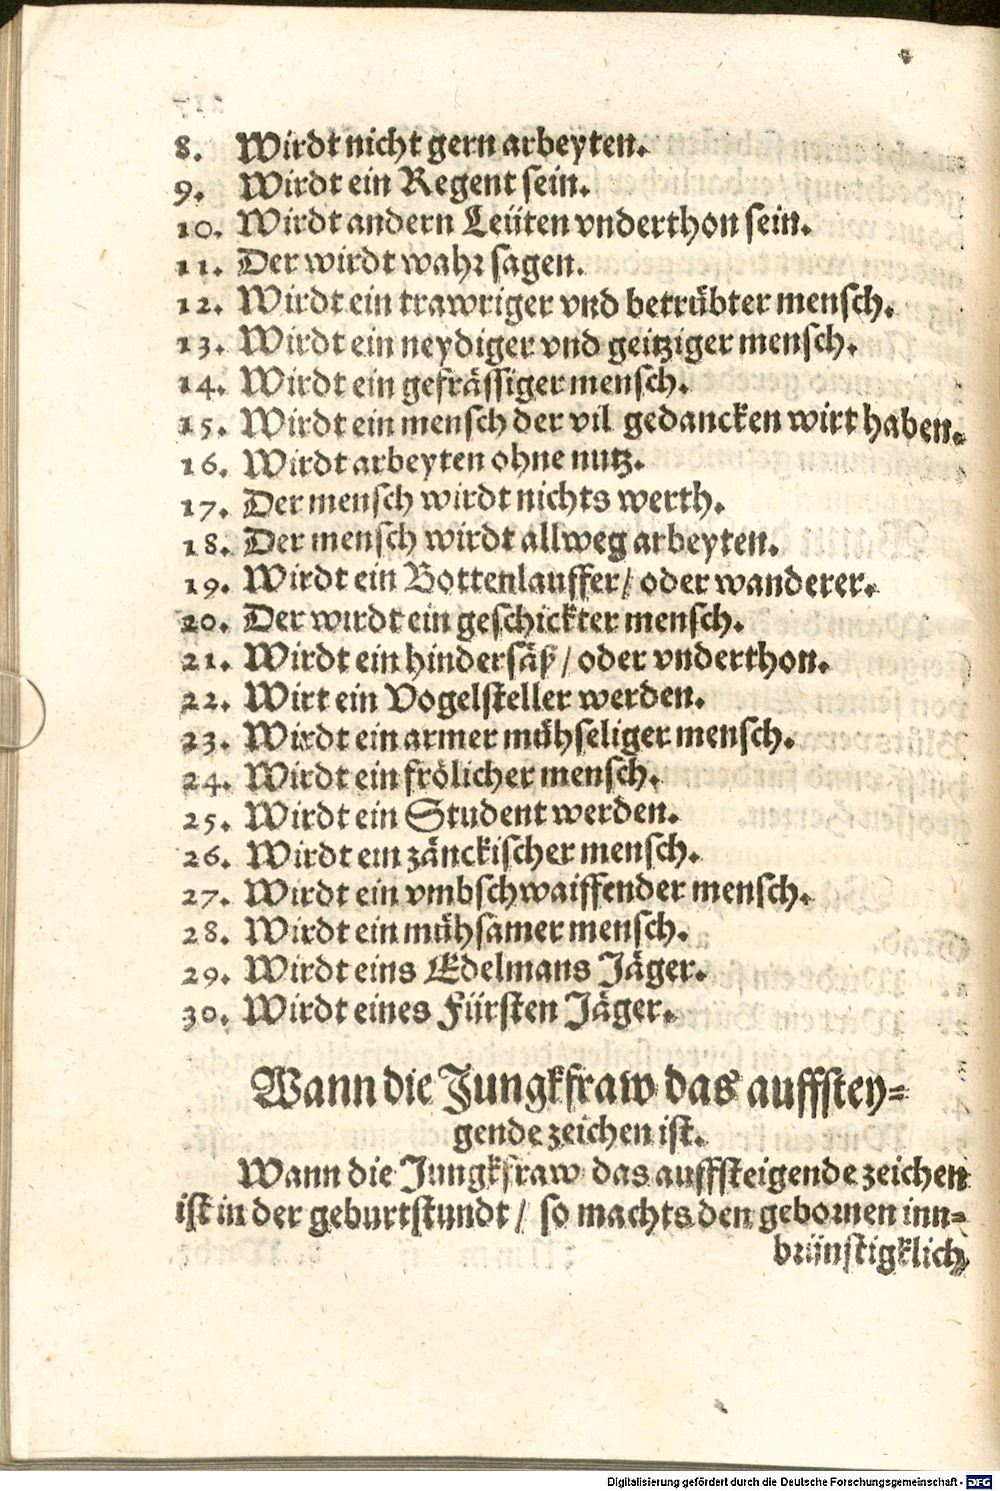 8. Wirdt nicht gern arbeyten.
9. Wirdt ein Regent sein.
10. Wirdt andern Leüten vnderthon sein.
11. Der wirdt wahr sagen.
12. Wirdt ein trawriger vnd betrübter mensch.
13. Wirdt ein neydiger vnd geitziger mensch.
14. Wirdt ein gefrässiger mensch.
15. Wirdt ein mensch der vil gedancken wirt haben.
16. Wirdt arbeyten ohne nutz.
17. Der mensch wirdt nichts werth.
18. Der mensch wirdt allweg arbeyten.
19. Wirdt ein Bottenlauffer/ oder wanderer.
20. Der wirdt ein geschickter mensch.
21. Wirdt ein hindersäß/ oder vnderthon.
22. Wirt ein Vogelsteller werden.
23. Wirdt ein armer mühseliger mensch.
24. Wirdt ein frölicher mensch.
25. Wirdt ein Student werden.
26. Wirdt ein zänckischer mensch.
27. Wirdt ein vmbschwaiffender mensch.
28. Wirdt ein mühsamer mensch.
29. Wirdt eins Edelmans Jäger.
30. Wirdt eines Fürsten Jäger.
Wann die Jungkfraw das auffstey=
gende zeichen ist.
Wann die Jungkfraw das auffsteigende zeichen
ist in der geburtstundt/ so machts den gebornen inn=
brünstigklich
Digitalisierung gefördert durch die Deutsche Forschungsgemeinschaft - DFG